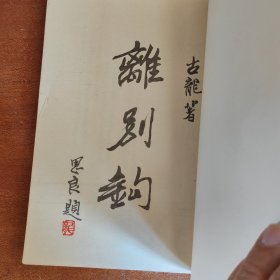 古龍著
離別鉤
思良題